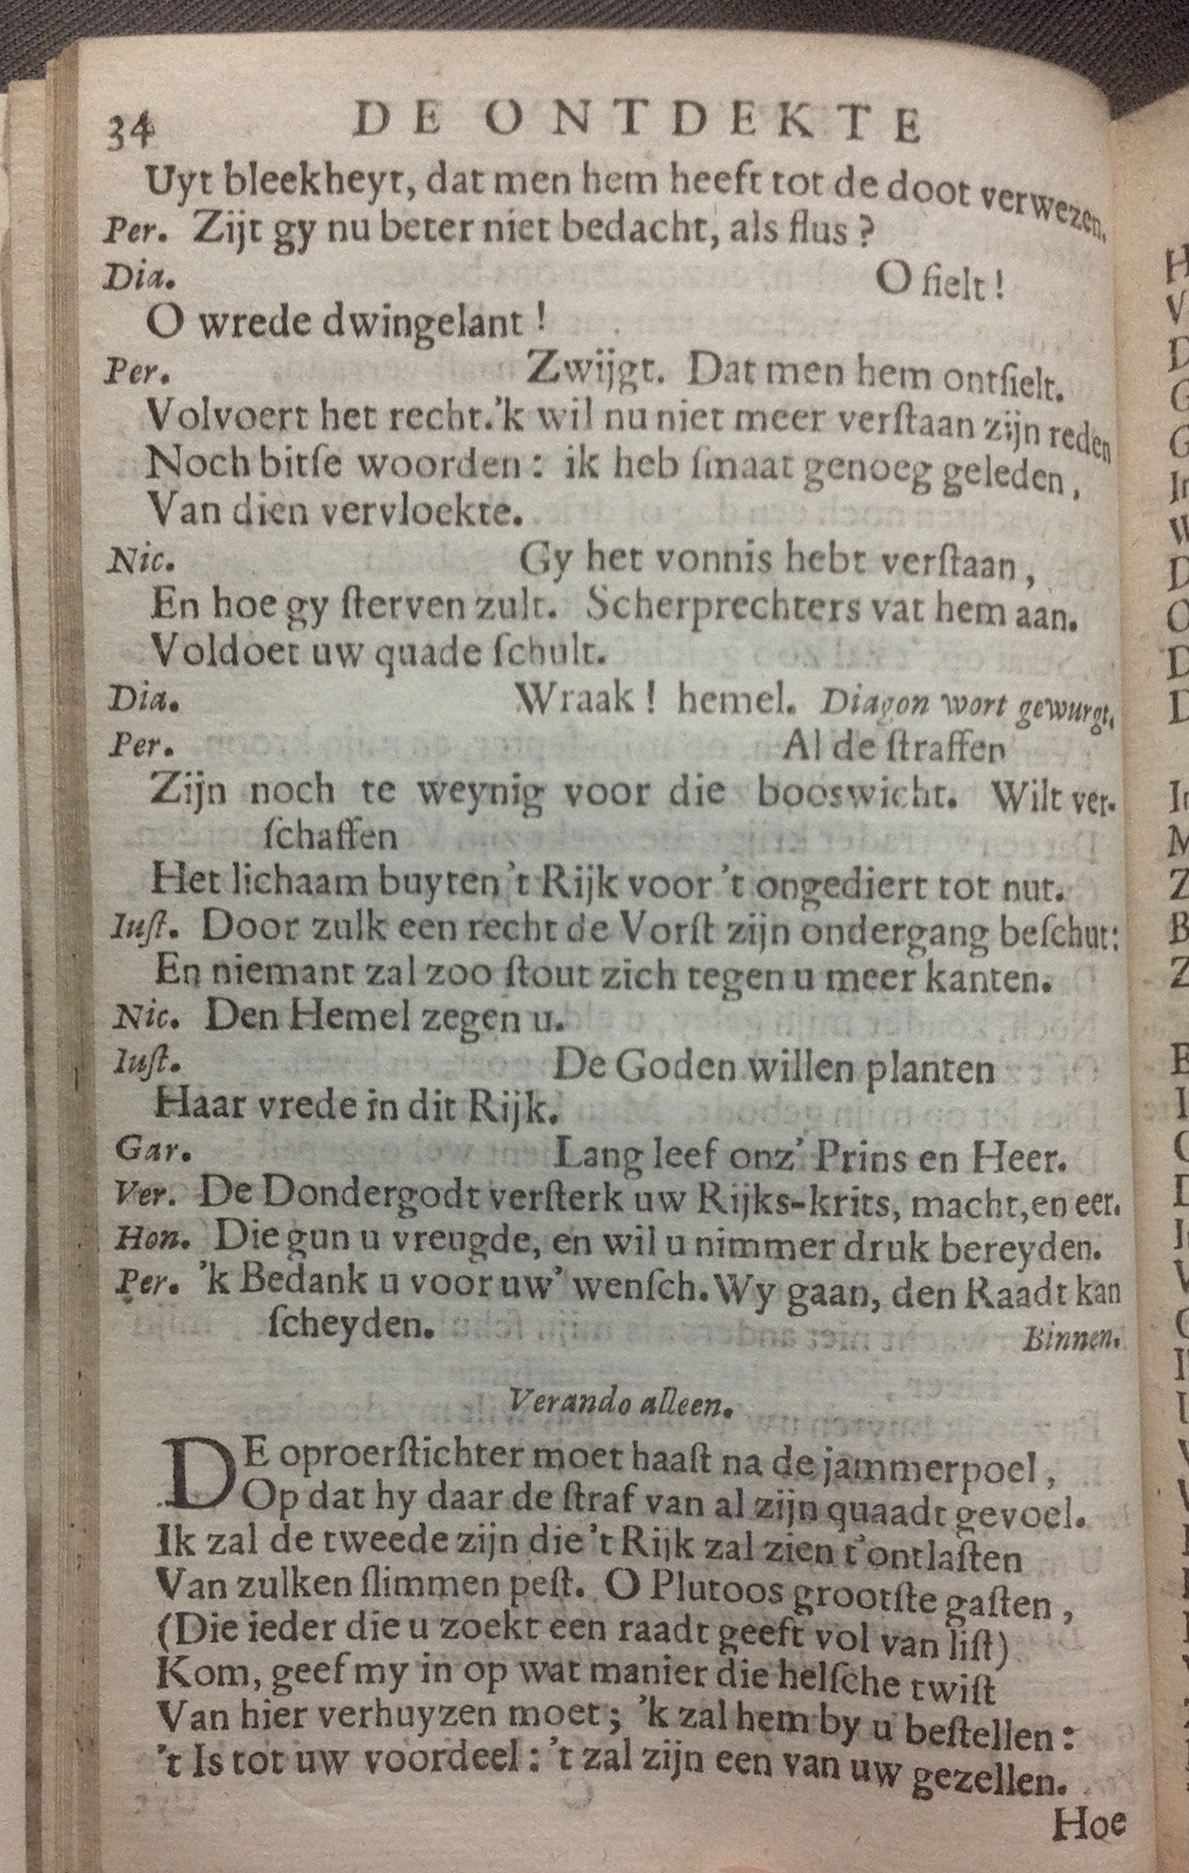 34 DE ONTDEKTE
Uyt bleekheyt, dat men hem heeft tot de doot verwezen.
Per. Zijt gy nu beter niet bedacht, als flus?
Dia. O fielt!
O wrede dwingelant!
Per. Zwijgt. Dat men hem ontſielt.
Volvoert het recht. 'k wil nu niet meer verſtaan zijn reden
Noch bitſe woorden: ik heb ſmaat genoeg geleden,
Van dien vervloekte.
Nic. Gy het vonnis hebt verſtaan,
En hoe gy ſterven zult. Scherprechters vat hem aan.
Voldoet uw quade ſchult.
Dia. Wraak! hemel. Diagon wort gewurgt.
Per. Al de ſtraffen
Zijn noch te weynig voor die booswicht. Wilt ver-
ſchaffen
Het lichaam buyten 't Rijk voor 't ongediert tot nut.
Iuſt. Door zulk een recht de Vorſt zijn ondergang beſchut:
En niemant zal zoo ſtout zich tegen u meer kanten.
Nic. Den Hemel zegen u.
Iuſt. De Goden willen planten
Haar vrede in dit Rijk.
Gar. Lang leef onz' Prins en Heer.
Ver. De Dondergodt verſterk uw Rijks-krits, macht, en eer.
Hon. Die gun u vreugde, en wil u nimmer druk bereyden.
Per. 'k Bedank u voor uw' wenſch. Wy gaan, den Raadt kan
ſcheyden. Binnen.
Verando alleen.
DE oproerſtichter moet haaſt na de jammerpoel,
Op dat hy daar de ſtraf van al zijn quaadt gevoel.
Ik zal de tweede zijn die 't Rijk zal zien t' ontlaſten
Van zulken ſlimmen peſt. O Plutoos grootſte gaſten,
(Die ieder die u zoekt een raadt geeft vol van liſt)
Kom, geef my in op wat manier die helſche twiſt
Van hier verhuyzen moet; 'k zal hem by u beſtellen:
't Is tot uw voordeel: 't zal zijn een van uw gezellen.
Hoe